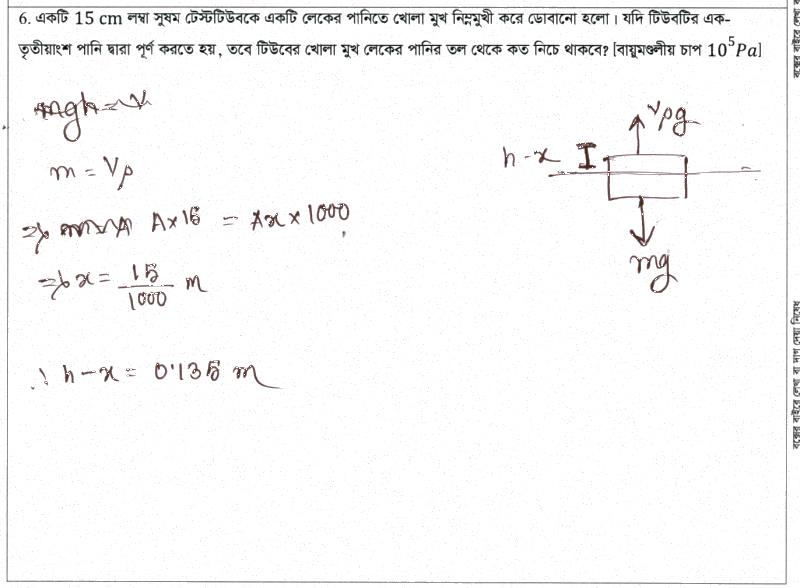 6. একটি 15 cm লম্বা সুষম টেস্টটিউবকে একটি লেকের পানিতে খোলা মুখ নিম্নমুখী করে ডোবানো হলো। যদি টিউবটির এক-
তৃতীয়াংশ পানি দ্বারা পূর্ণ করতে হয়, তবে টিউবের খোলা মুখ লেকের পানির তল থেকে কত নিচে থাকবে? [বায়ুমণ্ডলীয় চাপ 10⁵Pa]
mgh = V
Vρg
h-x I
m = Vρ
⇒ A×15 = Ax × 1000
mg
⇒ x = 15/1000 m
∴ h-x = 0.135 m
বক্সের বাইরে লেখা বা দাগ দেয়া নিষেধ